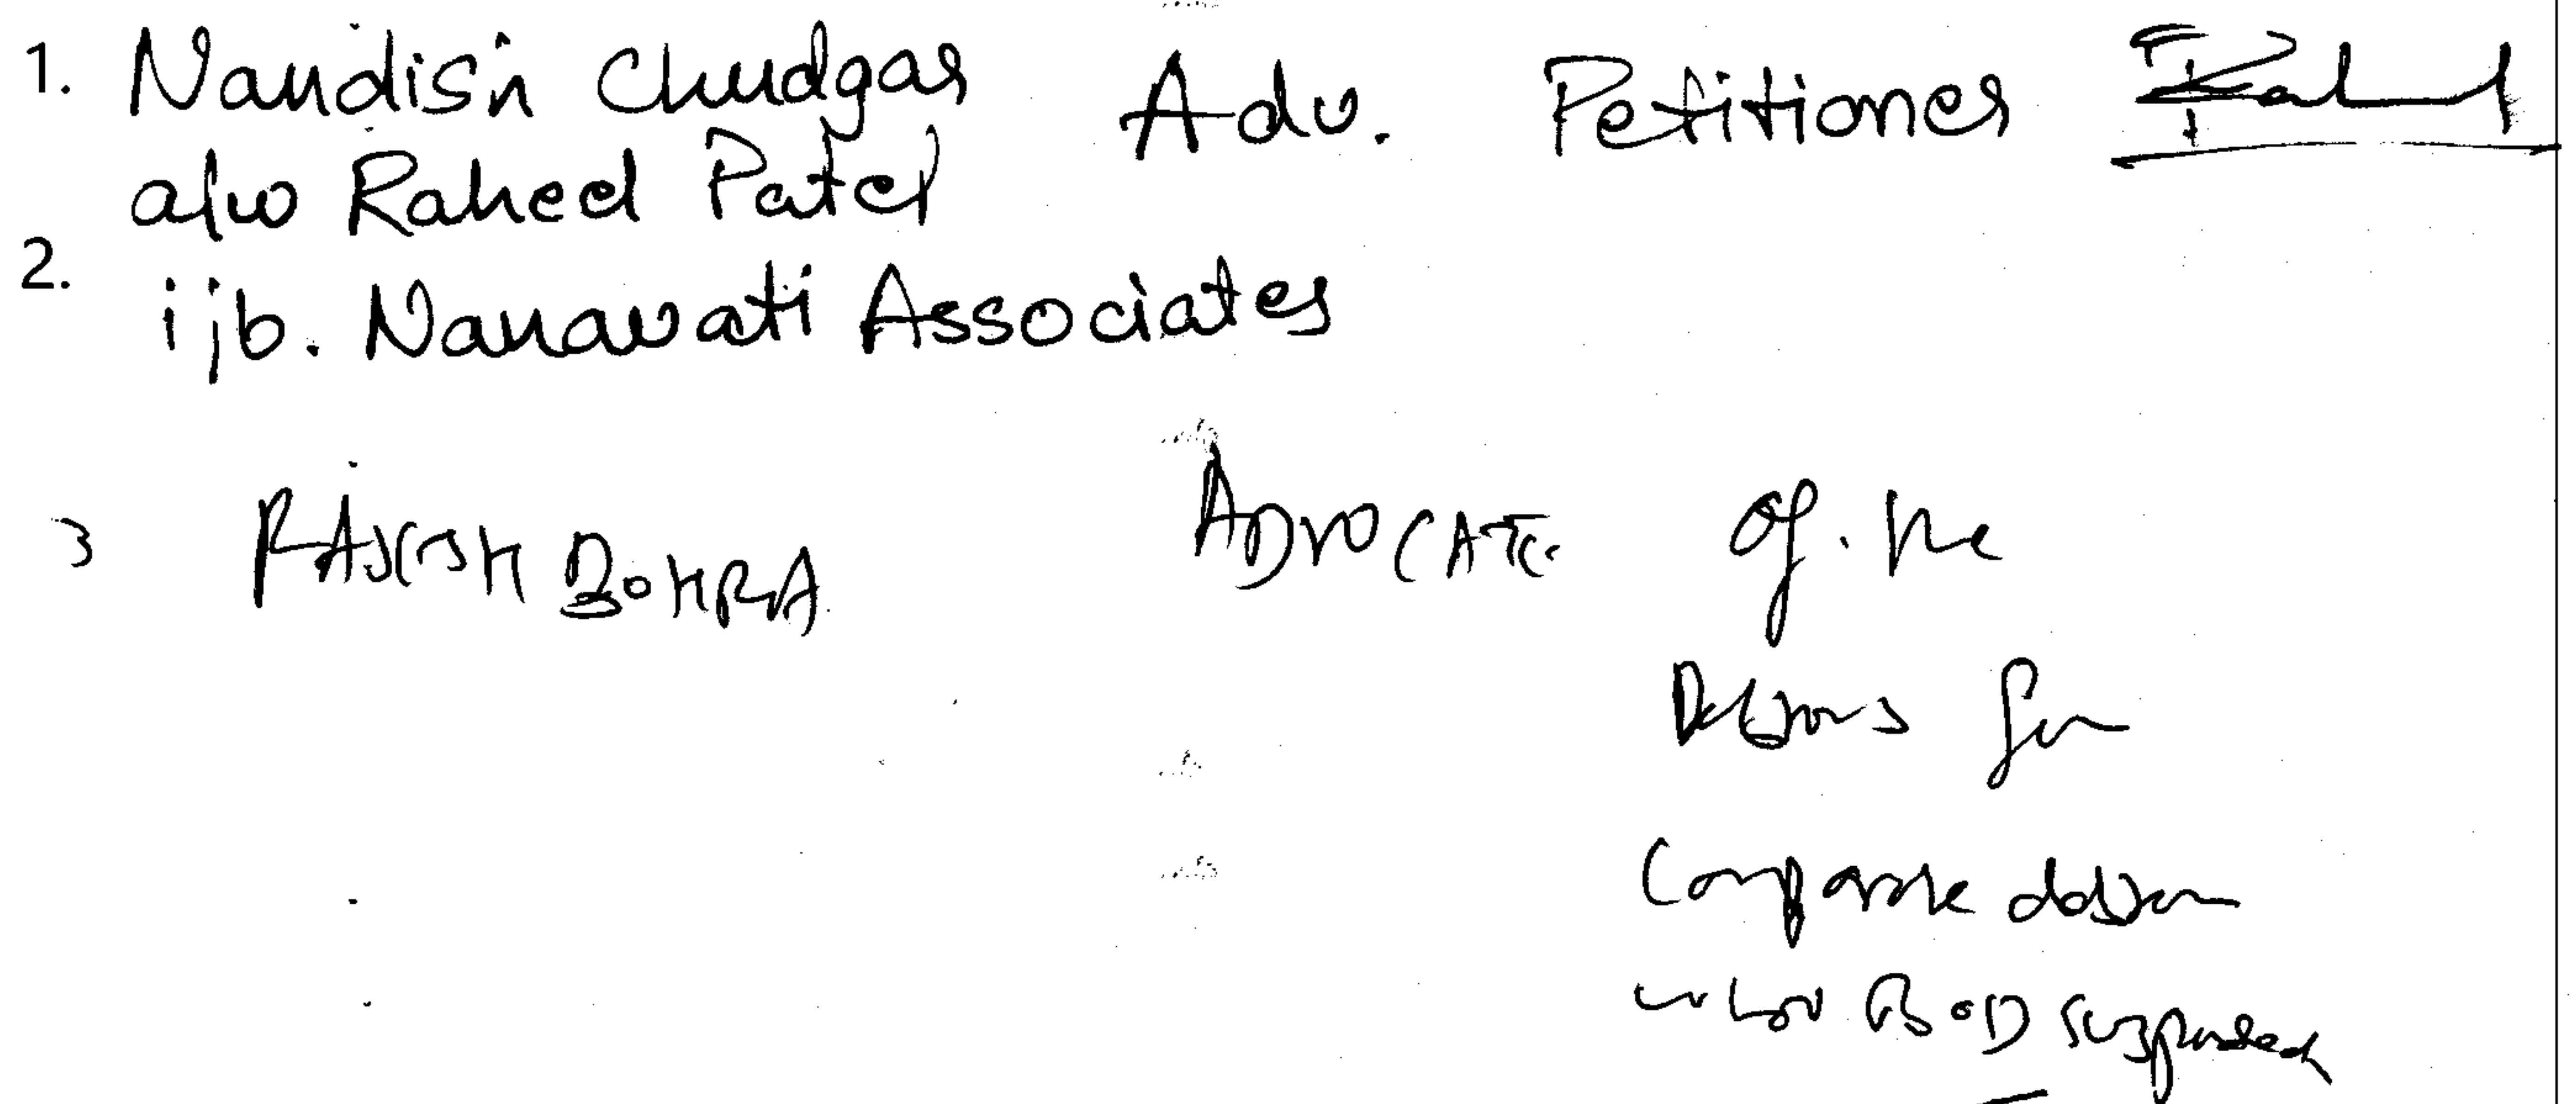 1. Nandish Chudgar Adv. Petitioner
a/w Raheel Patel
2.
i/b. Nanavati Associates
3 RAJESH BOHRA ADVOCATE of the
Debtors for
Corporate debtor
whose BOD suspended